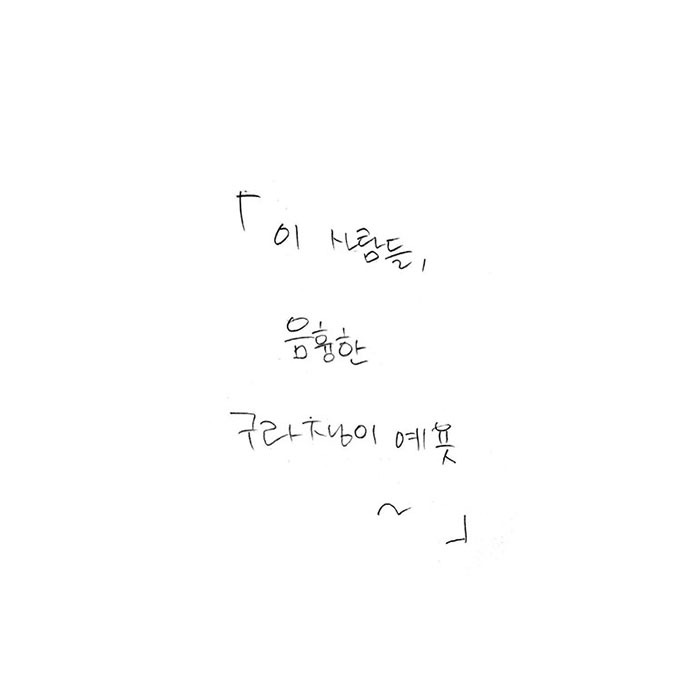 「 이 사람들,
음흉한
구라쟁이 예욧
~ 」